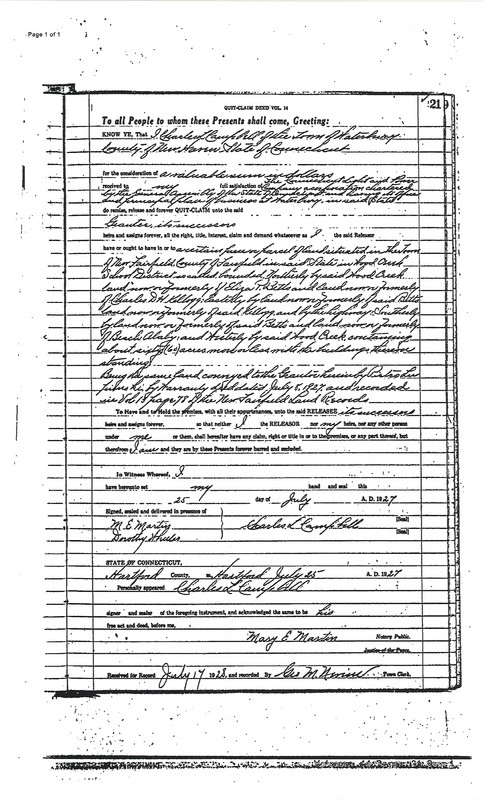 Page 1 of 1
219
QUIT-CLAIM DEED VOL. 14
To all People to whom these Presents shall come, Greeting:
KNOW YE, That I Charles L. Campbell of the Town of Waterbury
County of New Haven State of Connecticut
for the consideration of a valuable sum in dollars
received to my full satisfaction of The Connecticut Light and Power
Company a corporation chartered
by the General Assembly of the State of Connecticut and having its office
and principal place of business at Waterbury, in said State
do remise, release and forever QUIT-CLAIM unto the said
Grantee, its successors
heirs and assigns forever, all the right, title, interest, claim and demand whatsoever as I the said Releasor
have or ought to have in or to a certain piece or parcel of land situated in the Town
of New Fairfield County of Fairfield in said State in Wood Creek
School District so called bounded Northerly by said Wood Creek
land now or formerly of Eliza T. Betts and land now or formerly
of Charles D. H. Kellogg; Easterly by land now or formerly of said Betts
land now or formerly of said Kellogg, and by the highway; Southerly
by land now or formerly of said Betts and land now or formerly
of and Westerly by said Wood Creek, containing
about sixty (60) acres more or less with the buildings thereon
standing
Being the same land conveyed to the Grantor herein by
by Warranty Deed dated July 5, 1927 and recorded
in Vol. 18 page 78 of the New Fairfield Land Records.
To Have and to Hold the premises, with all their appurtenances, unto the said RELEASEE its successors
heirs and assigns forever, so that neither I the RELEASOR nor my heirs, nor any other person
under me or them, shall hereafter have any claim, right or title in or to the premises, or any part thereof, but
therefrom I am and they are by these Presents forever barred and excluded.
In Witness Whereof, I
have hereunto set my hand and seal this
25 day of July A. D. 1927
Signed, sealed and delivered in presence of
M. E. Martin Charles L. Campbell [Seal]
Dorothy [Seal]
STATE OF CONNECTICUT,
Hartford County, ss. Hartford July 25 A. D. 1927
Personally appeared Charles L. Campbell
signer and sealer of the foregoing instrument, and acknowledged the same to be his
free act and deed, before me,
Mary E. Martin Notary Public.
Justice of the Peace.
Received for Record July 17 1928, and recorded By Geo. M. Town Clerk.